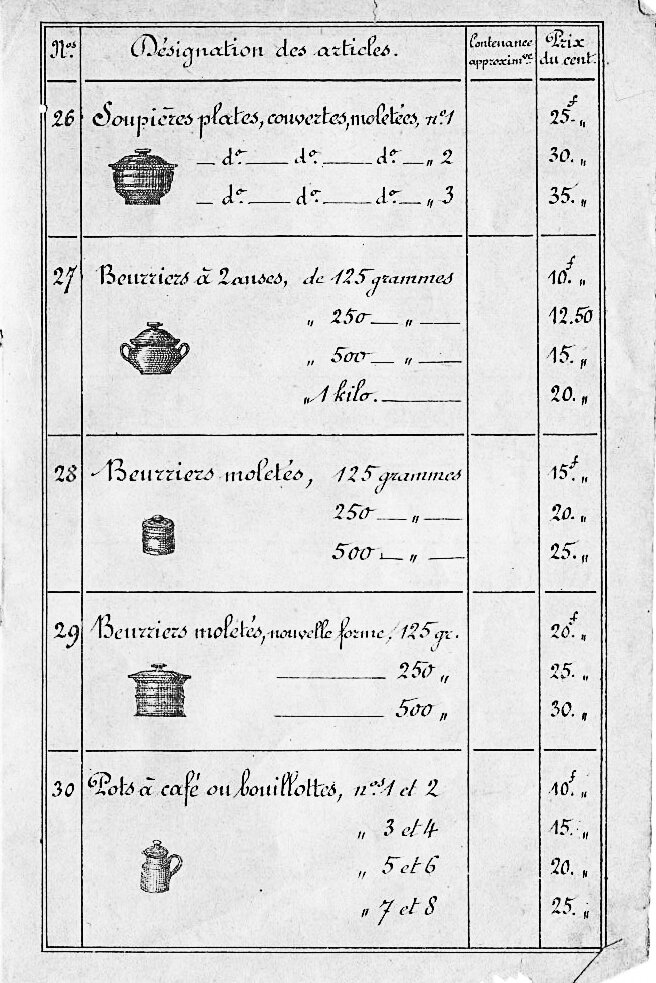 Nos Désignation des articles. Contenance approxim.ve Prix du cent.
26 Soupières plates, couvertes, moletées, no. 1 25.f "
— do. — do. — do. — " 2 30. "
— do. — do. — do. — " 3 35. "
27 Beurriers à 2 anses, de 125 grammes 10.f "
" 250 — " — 12.50
" 500 — " — 15. "
" 1 kilo. — 20. "
28 Beurriers moletés, 125 grammes 15.f "
250 — " — 20. "
500 — " — 25. "
29 Beurriers moletés, nouvelle forme, 125 gr. 20.f "
— 250 " 25. "
— 500 " 30. "
30 Pots à café ou bouillottes, nos. 1 et 2 10.f "
" 3 et 4 15. "
" 5 et 6 20. "
" 7 et 8 25. "